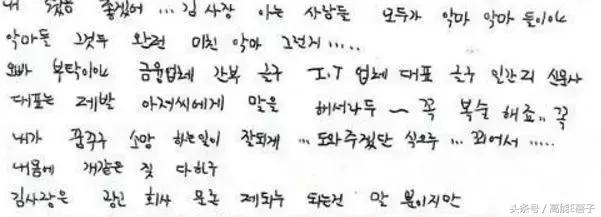 내 좋겠어 ... 김사장 아는 사람들 모두가 악마 악마 들이야
악마들 그것두 완전 미친 악마 그런거 .....
오빠 부탁이야 금융업체 간부 글구 I.T 업체 대표 글구 일간지 신문사
대표는 제발 아저씨에게 말을 해서라두 ~ 꼭 복수 해죠.. 꼭
내가 꿈꾸구 소망 하는일이 잘되게 ... 도와주겠단 식으루 ... 꾀어서 .....
내몸에 개같은 짓 다하구
김사장은 광고 회사 모른 제되는 되는건 말 뿐이지만
头条号 / 高能E蕃子